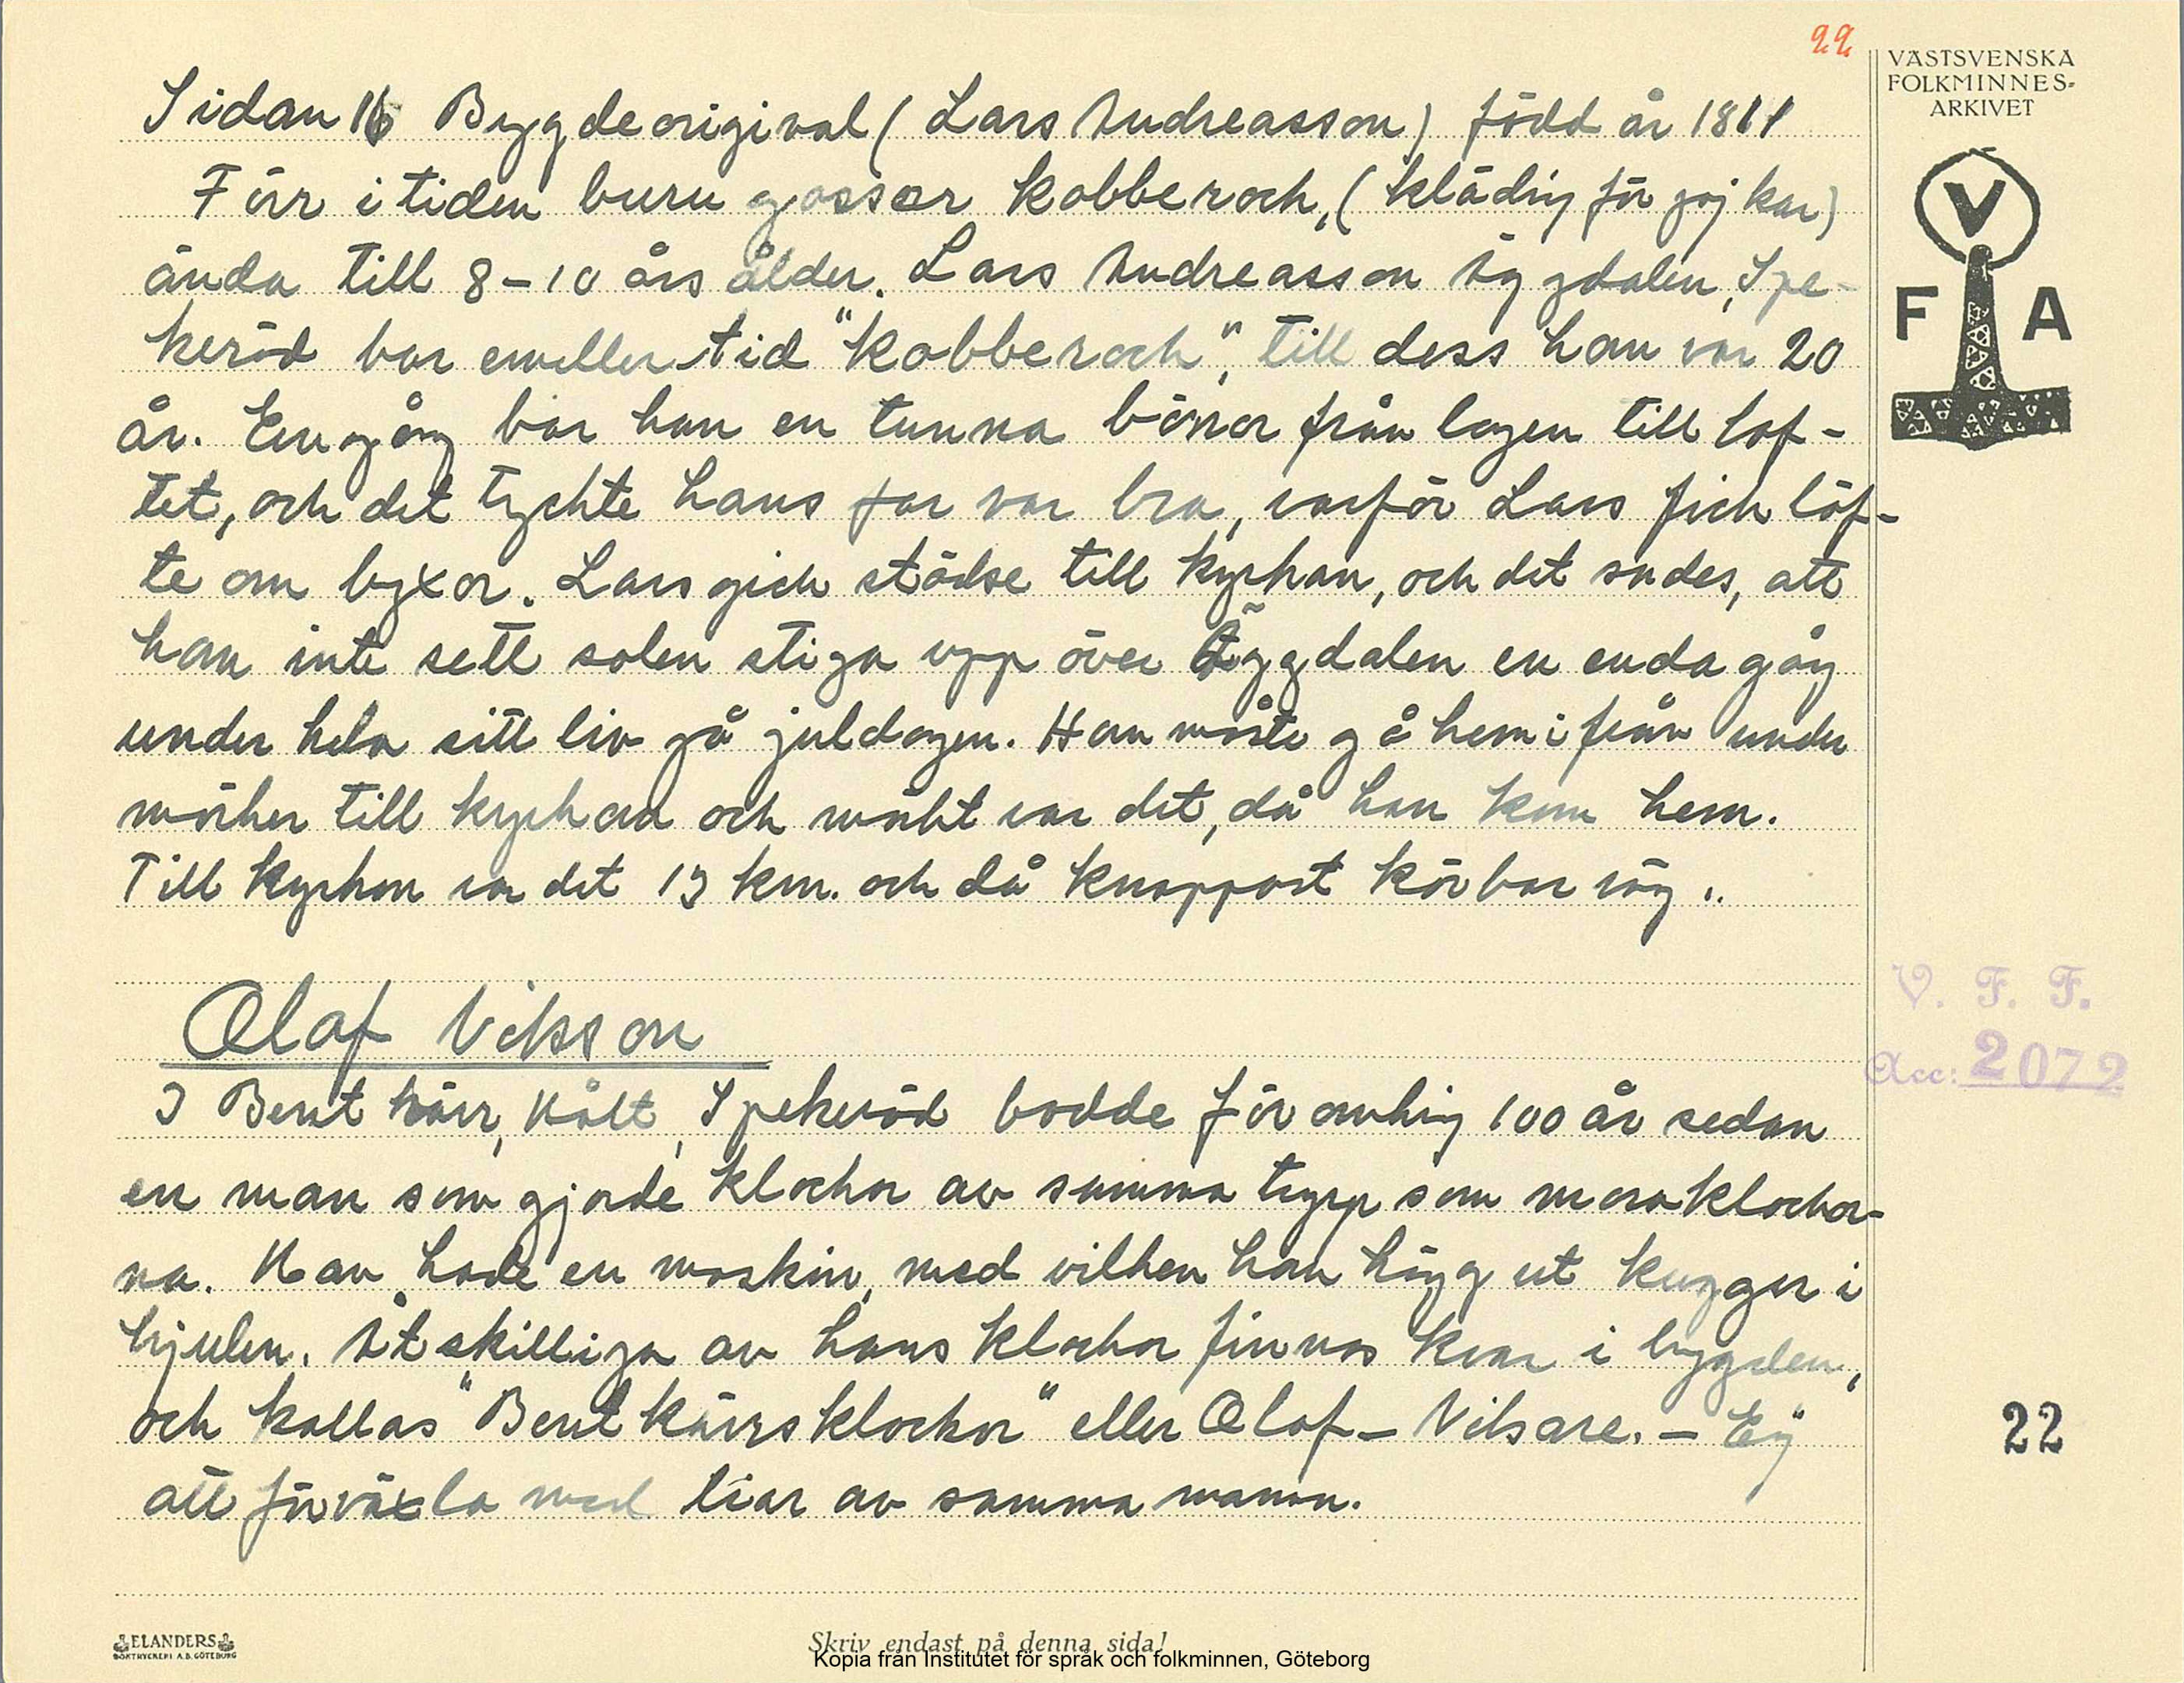 22.
VÄSTSVENSKA
FOLKMINNES-
ARKIVET
V
F A
Sidan 16 Bygdeoriginal (Lars Andreasson) född år 1811
Förr i tiden buru gossar kobberock, (klädnig för gojkar)
ända till 8-10 års ålder. Lars Andreasson Äggdalen, Spe-
keröd bar emellertid "kobberock", till dess han var 20
år. En gång bar han en tunna bönor från logen till lof-
tet, och det tyckte hans far var bra, varför Lars fick löf-
te om byxor. Lars gick städse till kyrkan, och det sades, att
han inte sett solen stiga upp över Äggdalen en enda gång
under hela sitt liv på juldagen. Han måste gå hemifrån under
mörker till kyrkan och mörkt var det, då han kom hem.
Till kyrkan var det 13 km. och då knappast körbar väg.
Olaf Nilsson
I Bentkärr, Kålt, Spekeröd bodde för omkring 100 år sedan
en man som gjorde klockor av samma typ som moraklockor-
na. Han hade en maskin, med vilken han högg ut kuggar i
hjulen. Åtskilliga av hans klockor finnas kvar i bygden,
och kallas "Bentkärrsklockor" eller Olof-Nilsare. - Ej
att förväxla med liar av samma namn.
V. F. F.
Acc: 2072
22
ELANDERS
BOKTRYCKERI A.B. GÖTEBORG
Skriv endast på denna sida!
Kopia från Institutet för språk och folkminnen, Göteborg